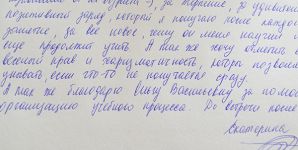 за терпение, за удивительный
позитивный заряд, который я получаю после каждого
занятия, за все новое, чему он меня научил и
еще продолжает учить. А так же хочу отметить его
веселый нрав и харизматичность, которая позволяет
унывать, если что-то не получается сразу.
А так же благодарю Васильевну за помощь
организацию учебного процесса. До встречи после
Екатерина